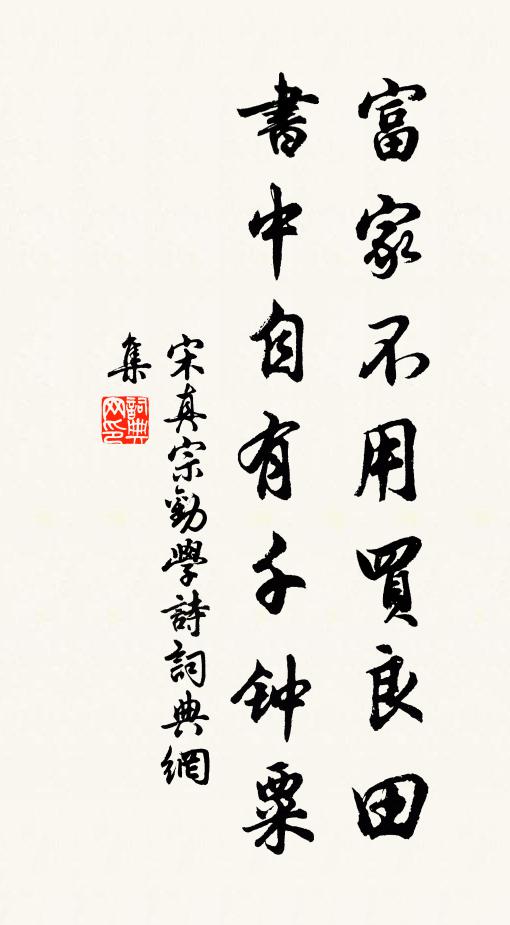 富家不用買良田
書中自有千钟粟
宋真宗勸學詩詞典網
集
詞典
网印